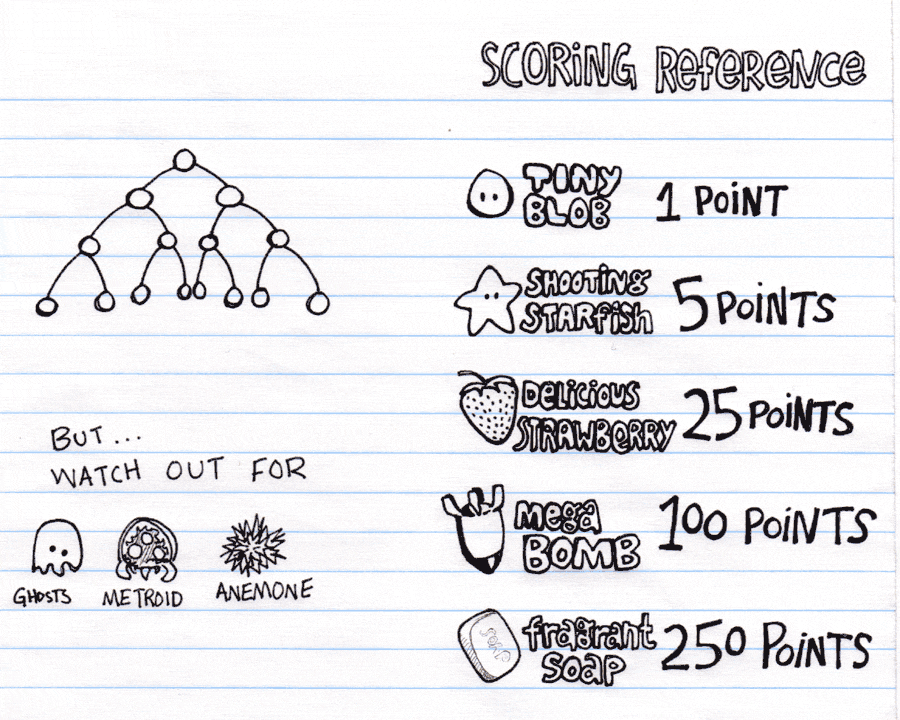 SCORING REFERENCE
TINY
BLOB
1 POINT
SHOOTING
STARFISH
5 POINTS
DELICIOUS
STRAWBERRY
25 POINTS
mega
BOMB
100 POINTS
fragrant
SOAP
250 POINTS
SOAP
BUT...
WATCH OUT FOR
GHOSTS
METROID
ANEMONE